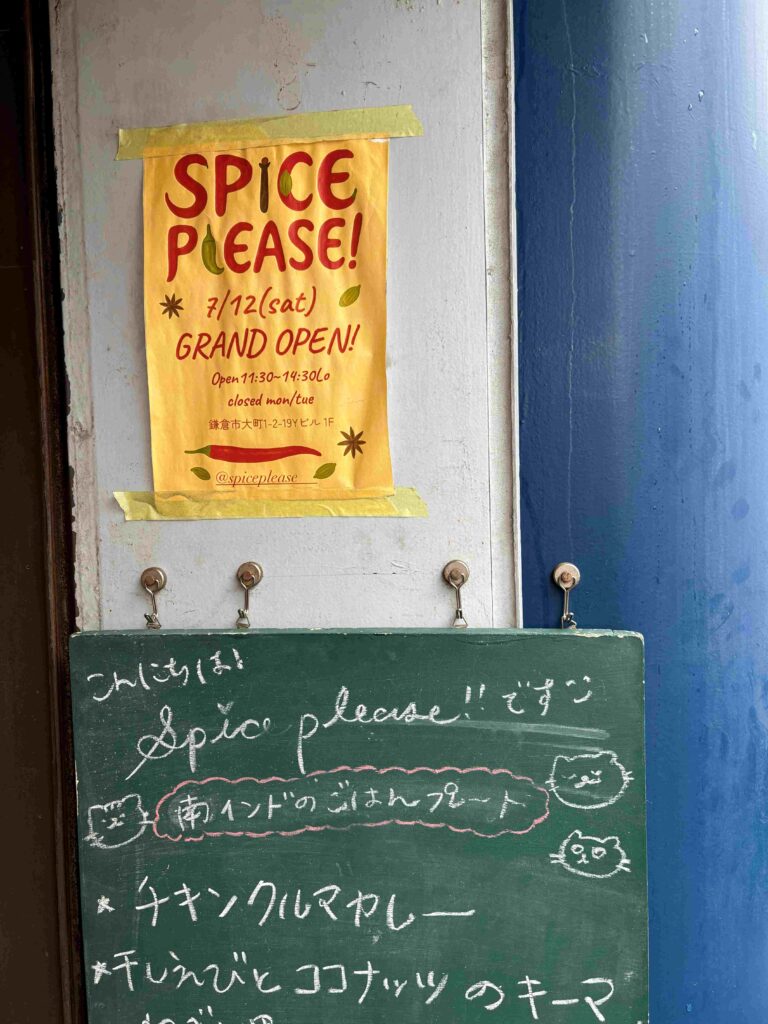 SPICE
PLEASE!
7/12(sat)
GRAND OPEN!
Open 11:30~14:30Lo
closed mon/tue
鎌倉市大町1-2-19Yビル 1F
@spiceplease
こんにちは!
Spice please!! です
南インドのごはんプレート
* チキンクルマカレー
* 干しえびとココナッツのキーマ